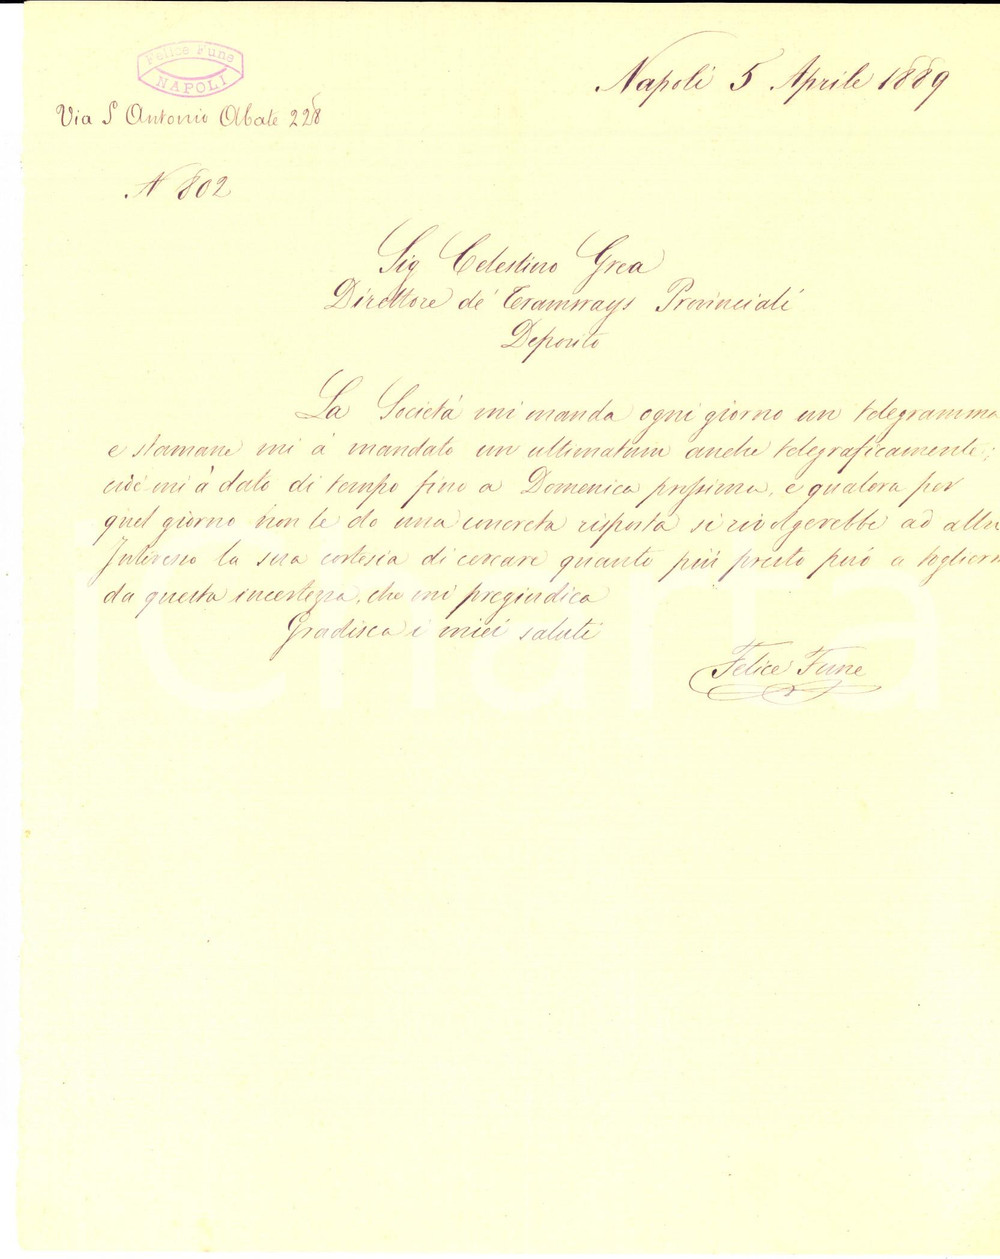 Felice Fune
NAPOLI
Via S Antonio Abate 228
Napoli 5 Aprile 1889
N 802
Sig Celestino Grea
Direttore de' Tramways Provinciali
Deposito
La Società mi manda ogni giorno un telegramma
e stamane mi à mandato un ultimatum anche telegraficamente;
cioè mi à dato di tempo fino a Domenica prossima, e qualora per
quel giorno non le do una concreta risposta si rivolgerebbe ad altri
Interesso la sua cortesia di cercare quanto più presto può a togliermi
da questa incertezza, che mi pregiudica
Gradisca i miei saluti
Felice Fune
iCharta